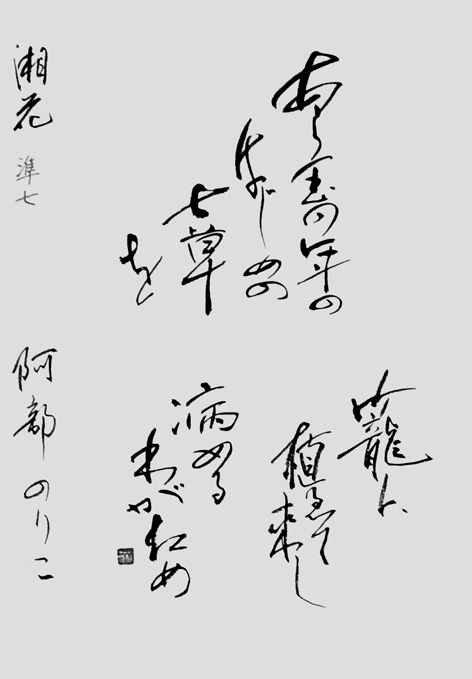 あら玉の年の
はじめの
七草
を
籠に
植ゑて来し
病める
わがため
湘花 準七
阿部のりこ